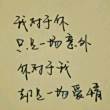 我对于你
只是一场意外
你对于我
却是一场爱情